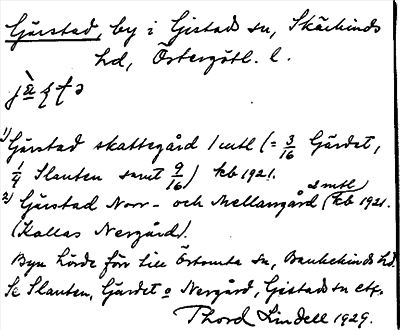 Gärstad, by i Gistad sn, Skärkinds
hd, Östergötl. l.
1) Gärstad skattegård 1 mtl (= 3/16 Gärdet,
1/4 Slanten samt 9/16) kb 1921.
2) Gärstad Norr- och Mellangård (2 mtl kb 1921.
(Kallas Nergård).
Byn hörde förr till Örtomta sn, Bankekinds hd.
Se Slanten, Gärdet o Nergård, Gistad sn etc.
Thord Lindell 1929.